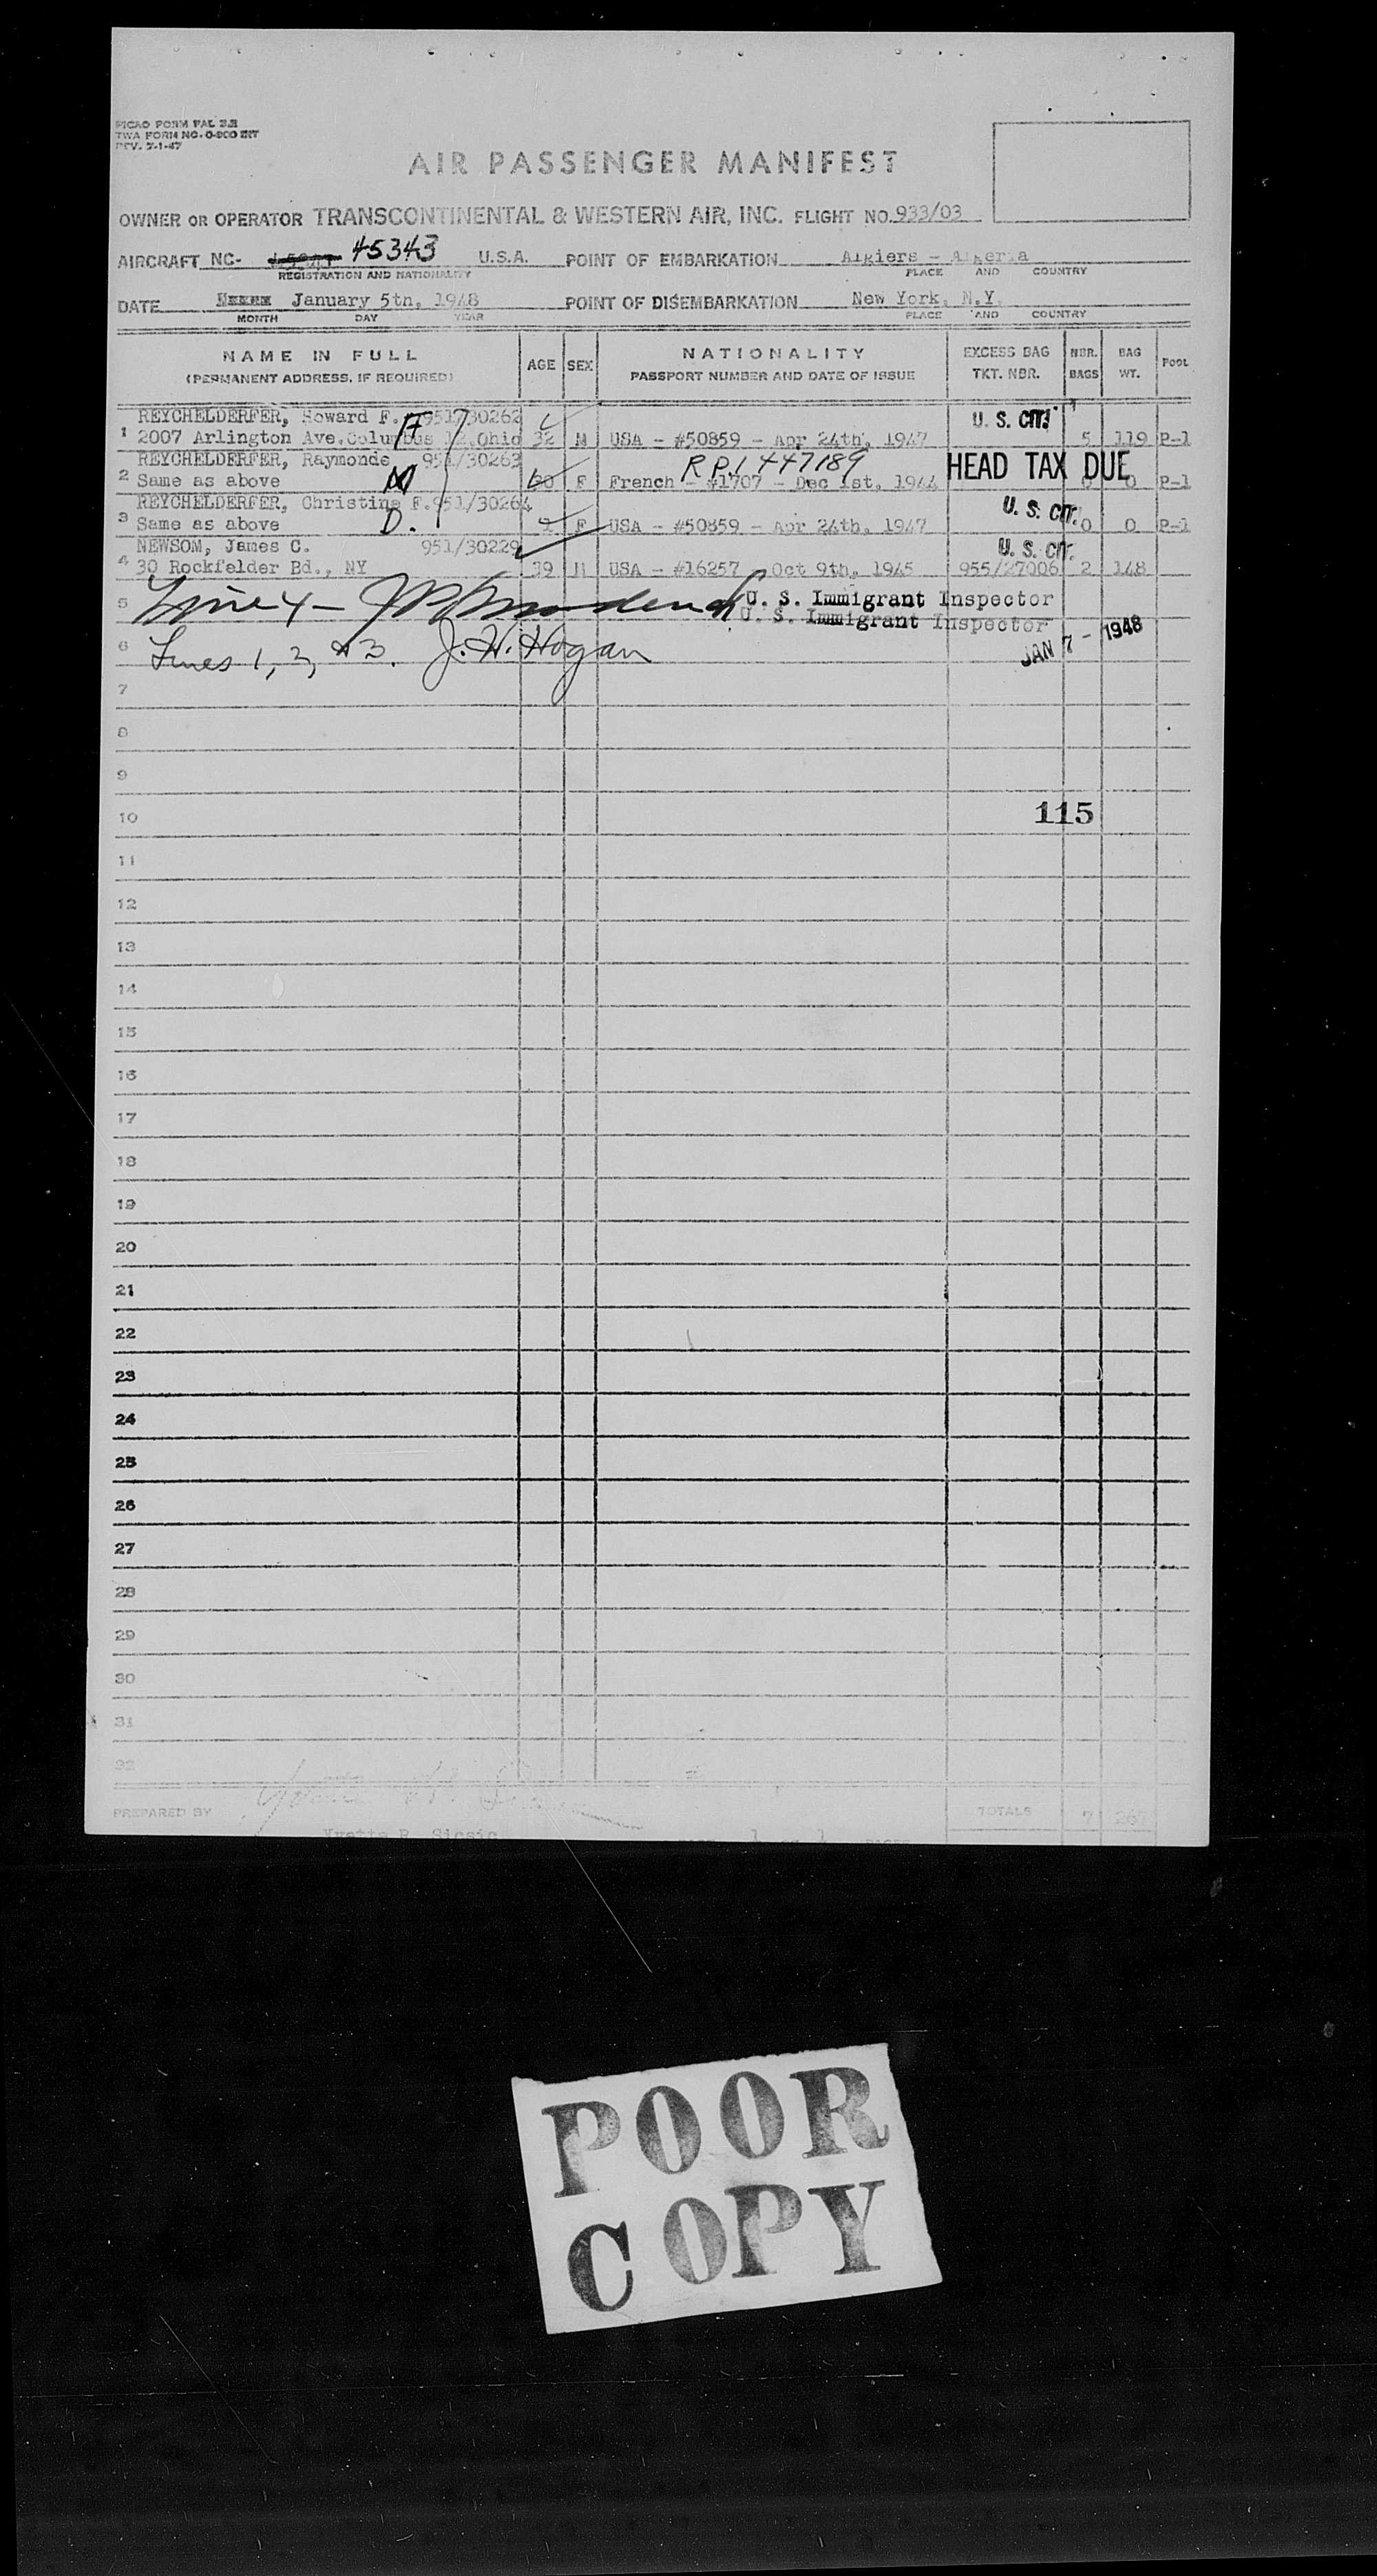 PICAO FORM FAL 2.2
TWA FORM NO. O-900 INT
REV. 7-1-47
AIR PASSENGER MANIFEST
OWNER OR OPERATOR TRANSCONTINENTAL & WESTERN AIR, INC. FLIGHT NO. 933/03
AIRCRAFT NC- 45343 U.S.A. POINT OF EMBARKATION Algiers - Algeria
REGISTRATION AND NATIONALITY PLACE AND COUNTRY
DATE January 5th, 1948 POINT OF DISEMBARKATION New York, N.Y.
MONTH DAY YEAR PLACE AND COUNTRY
NAME IN FULL (PERMANENT ADDRESS, IF REQUIRED) AGE SEX NATIONALITY PASSPORT NUMBER AND DATE OF ISSUE EXCESS BAG TKT. NBR. NBR. BAGS BAG WT. POOL
REYCHELDERFER, Howard F. 951/30262 U. S. CIT.
1 2007 Arlington Ave. Columbus 12, Ohio 32 M USA - #50859 - Apr 24th, 1947 5 119 P-1
REYCHELDERFER, Raymonde 951/30263 R P.1447189 HEAD TAX DUE
2 Same as above M F French - #1707 - Dec 1st, 1944 0 0 P-1
REYCHELDERFER, Christine F. 951/30264 U. S. CIT.
3 Same as above D. F USA - #50859 - Apr 24th, 1947 0 0 P-1
NEWSOM, James C. 951/30229 U. S. CIT.
4 30 Rockfelder Bd., NY 39 M USA - #16257 Oct 9th, 1945 955/27006 2 148
5 Line 4 - U. S. Immigrant Inspector
U. S. Immigrant Inspector
6 Lines 1, 2, & 3. J. H. Hogan JAN 7 - 1948
7
8
9
10 115
11
12
13
14
15
16
17
18
19
20
21
22
23
24
25
26
27
28
29
30
31
32
PREPARED BY TOTALS 7 267
Yvette R. Sicsic 1 1 PAGES
POOR
COPY